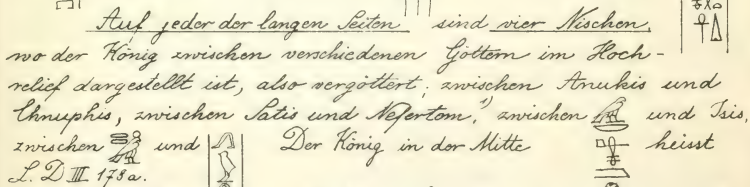 Auf jeder der langen Seiten sind vier Nischen,
wo der König zwischen verschiedenen Göttern im Hoch-
relief dargestellt ist, also vergöttert; zwischen Anukis und
Chnuphis, zwischen Satis und Nefertom,¹) zwischen und Isis,
zwischen und Der König in der Mitte heisst
L. D III 178a.